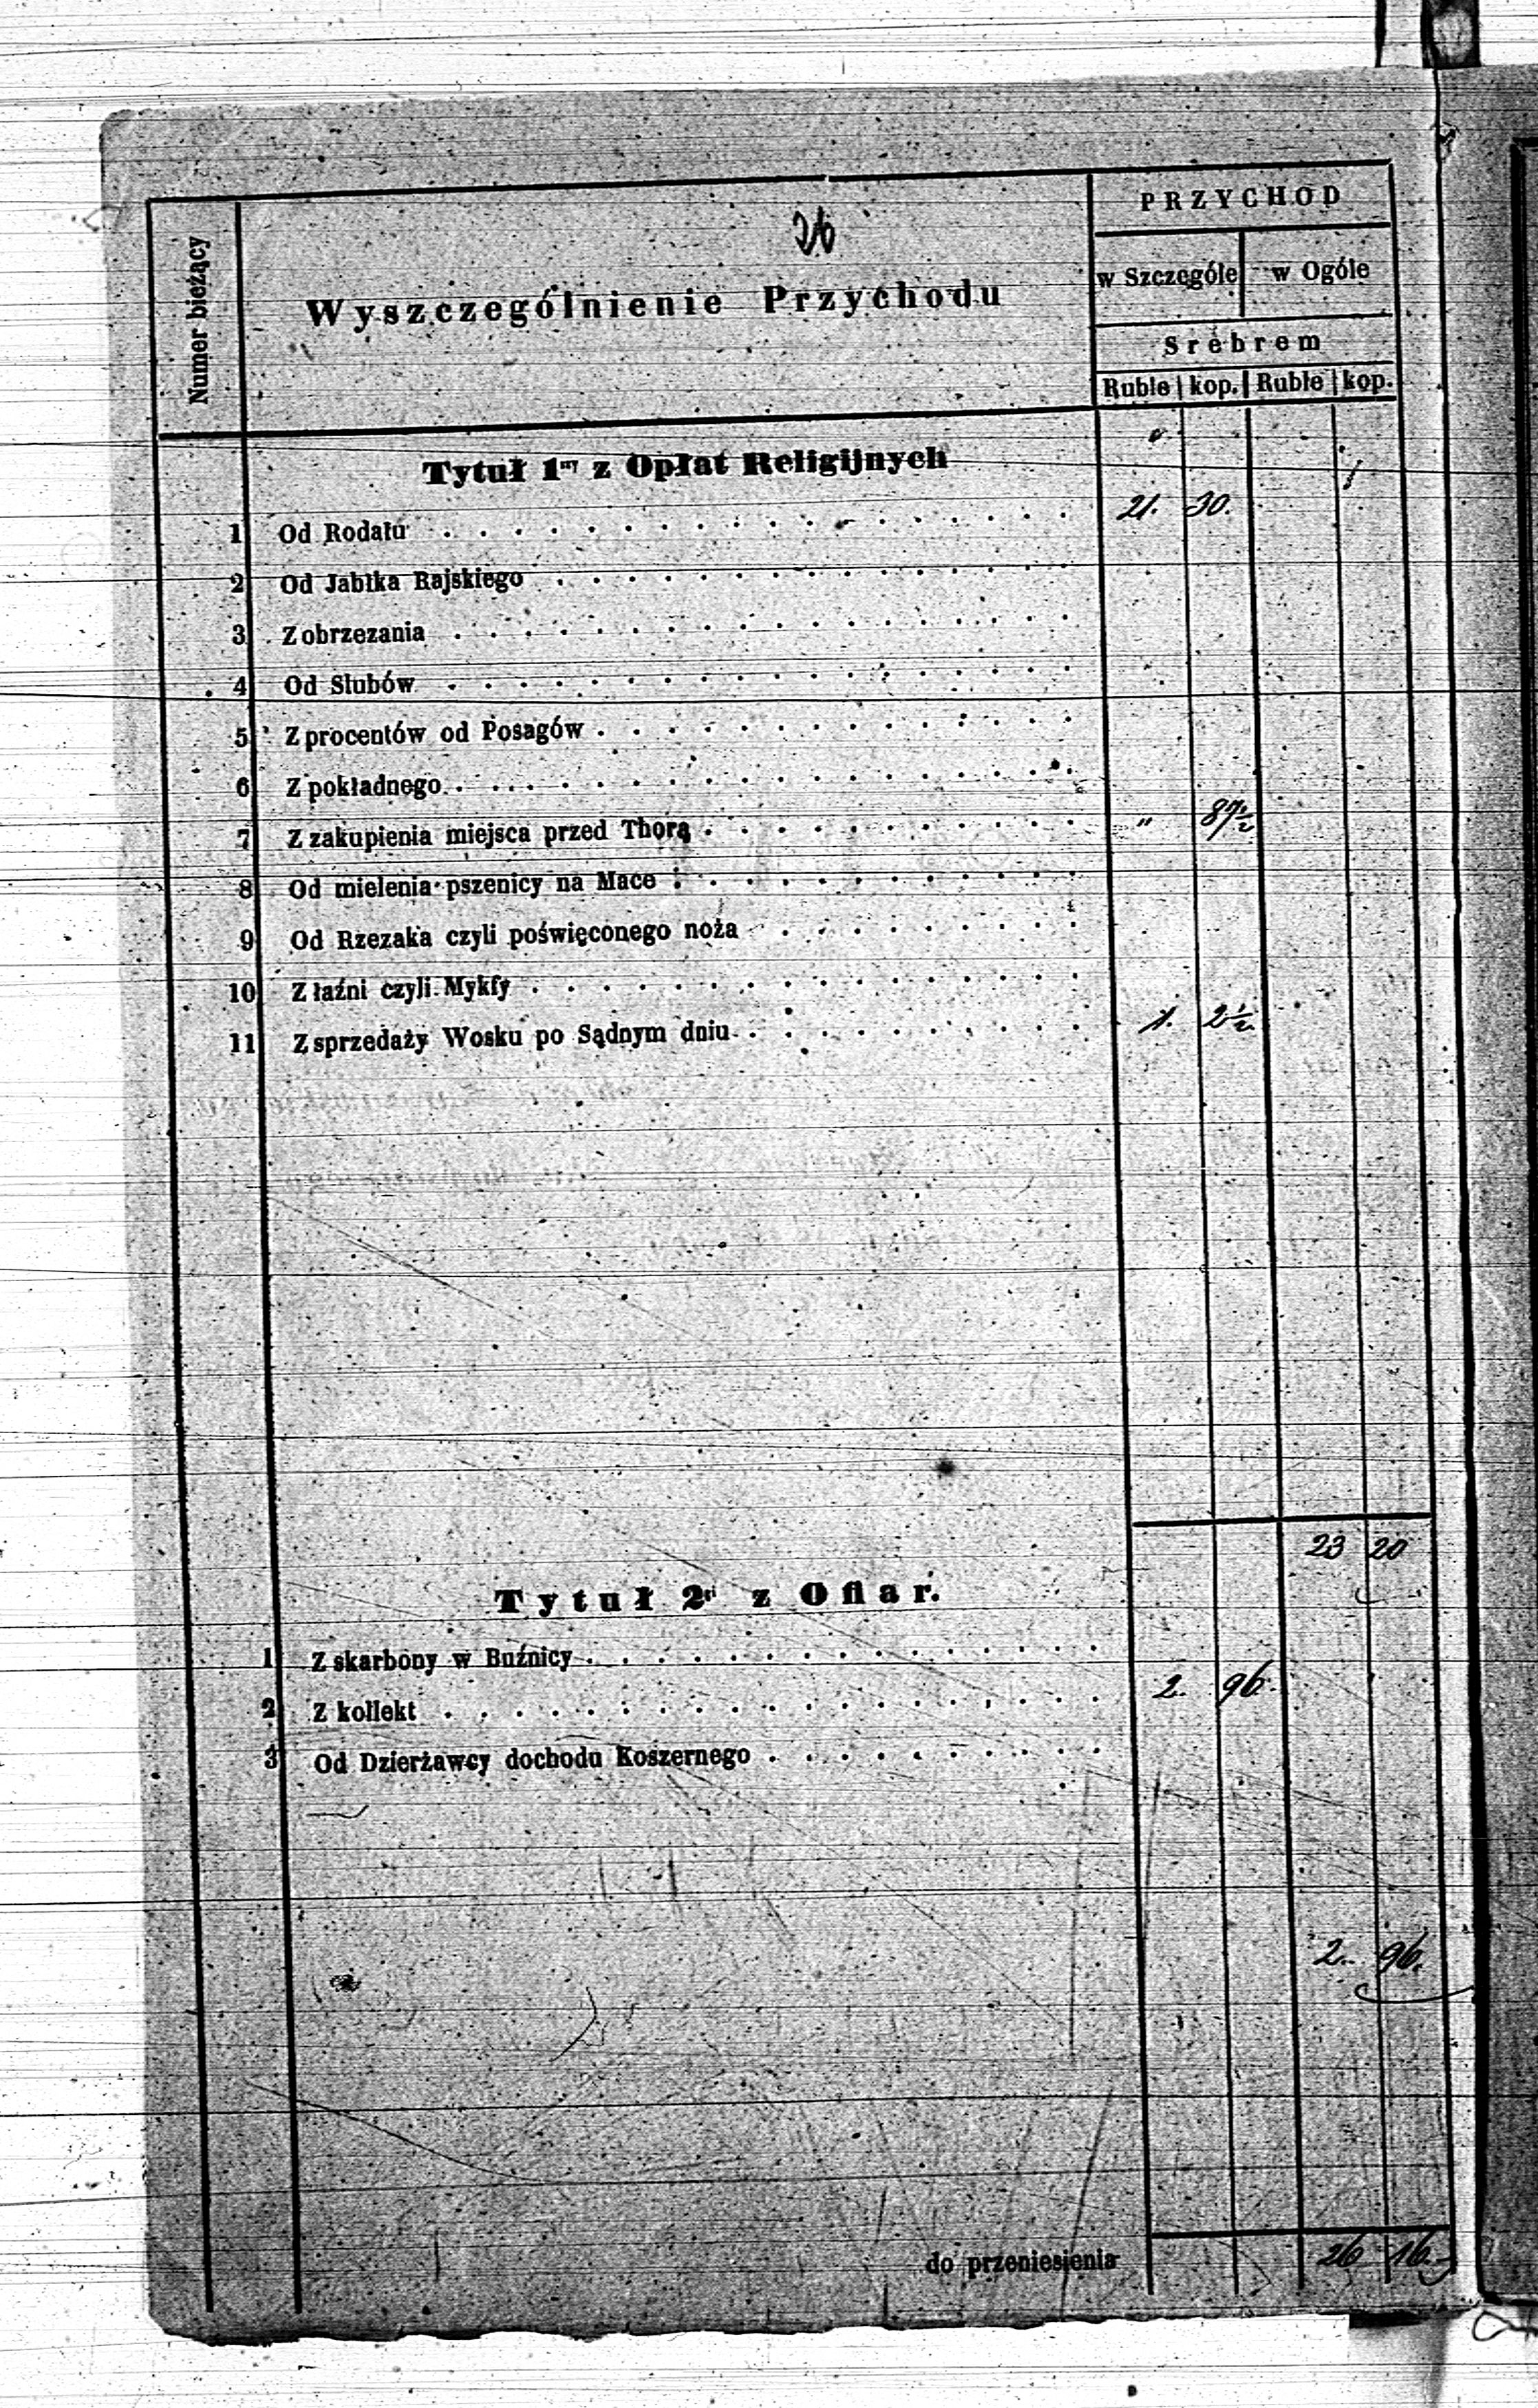 26
Numer bieżący
Wyszczególnienie Przychodu
PRZYCHOD
w Szczególe w Ogóle
Srebrem
Ruble kop. Ruble kop.
Tytuł 1ny z Opłat Religijnych
1 Od Rodału . . . . . . . . . 21. 30.
2 Od Jabłka Rajskiego . . . . . . . . .
3 Z obrzezania . . . . . . . . .
4 Od Slubów . . . . . . . . .
5 Z procentów od Posagów . . . . . . . . .
6 Z pokładnego . . . . . . . . .
7 Z zakupienia miejsca przed Thorą . . . . . . . . . " 87½
8 Od mielenia pszenicy na Mace . . . . . . . . .
9 Od Rzezaka czyli poświęconego noża . . . . . . . . .
10 Z łaźni czyli Mykfy . . . . . . . . .
11 Z sprzedaży Wosku po Sądnym dniu . . . . . . . . . 1. 2½
23 20
Tytuł 2gi z Ofiar.
1 Z skarbony w Buźnicy . . . . . . . . .
2 Z kollekt . . . . . . . . . 2. 96.
3 Od Dzierżawcy dochodu Koszernego . . . . . . . . .
2. 96.
do przeniesienia 26 16